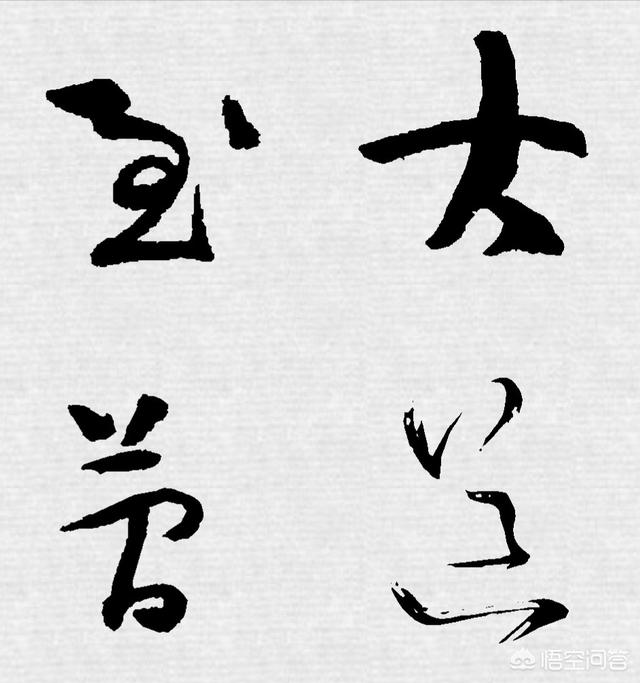 大道
至简
悟空问答